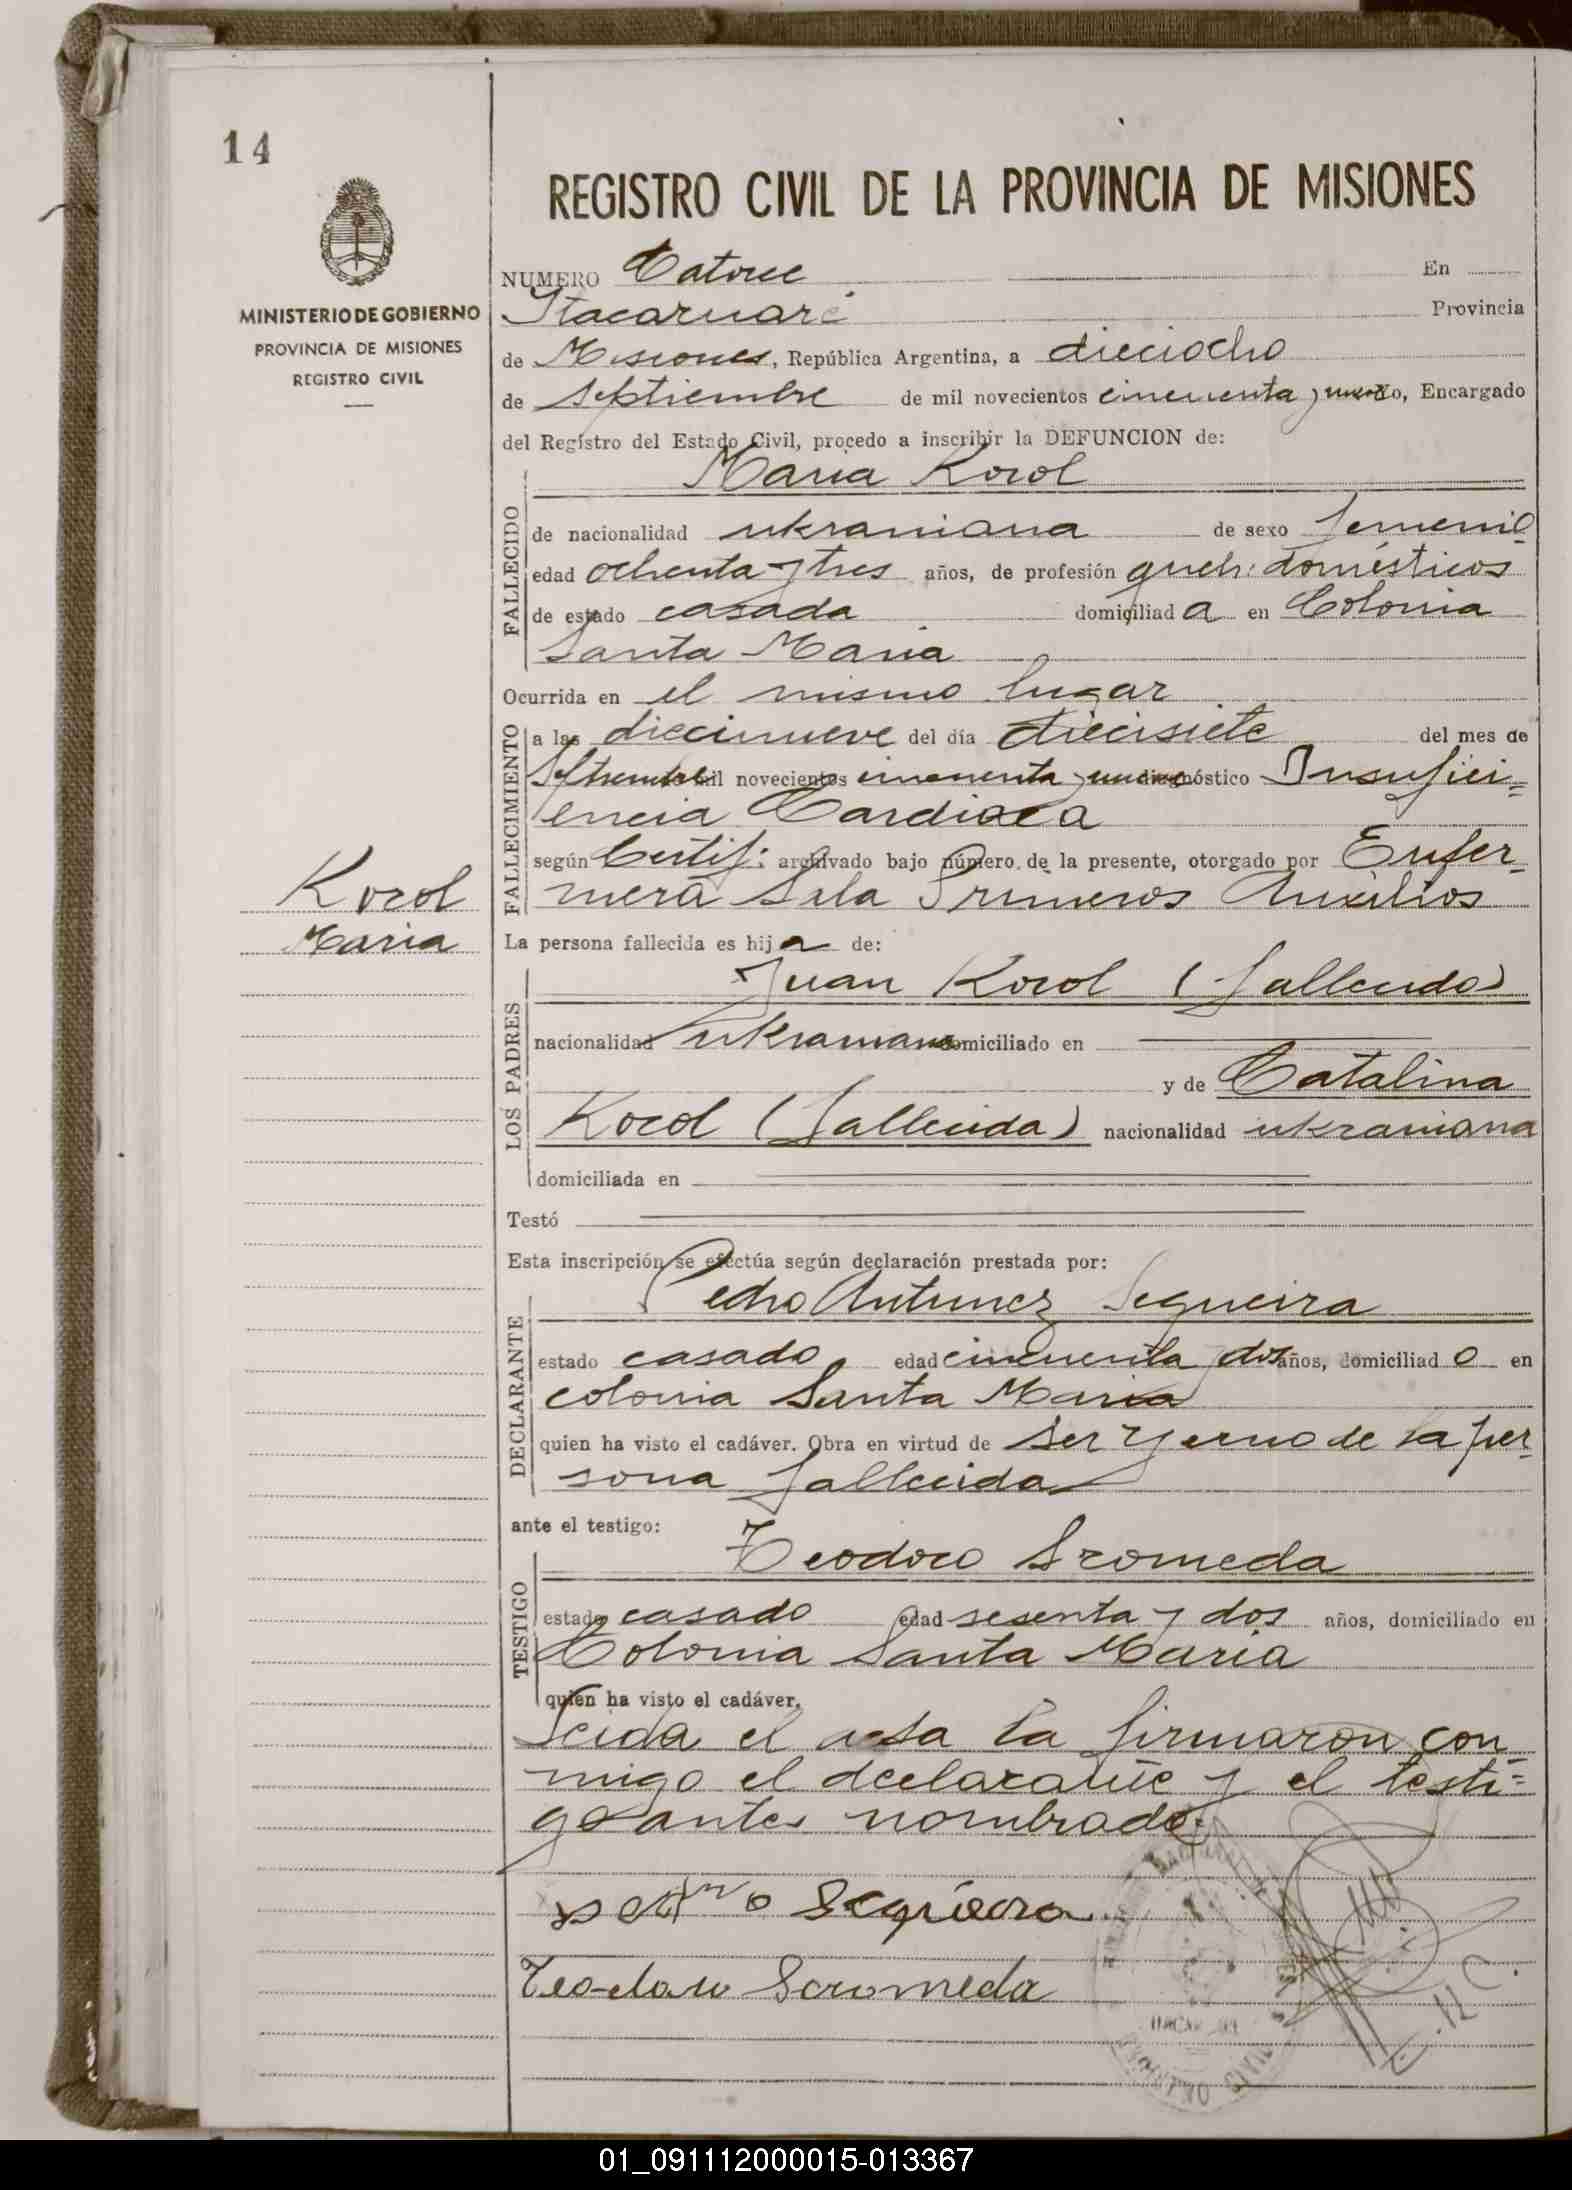 14
MINISTERIO DE GOBIERNO
PROVINCIA DE MISIONES
REGISTRO CIVIL
REGISTRO CIVIL DE LA PROVINCIA DE MISIONES
NUMERO Catorce En
Itacaruaré Provincia
de Misiones, República Argentina, a dieciocho
de Septiembre de mil novecientos cincuenta y nueve, Encargado
del Registro del Estado Civil, procedo a inscribir la DEFUNCION de:
Maria Korol
FALLECIDO
de nacionalidad ukraniana de sexo femenil
edad ochenta y tres años, de profesión queh: domésticos
de estado casada domiciliad a en Colonia
Santa Maria
Ocurrida en el mismo lugar
FALLECIMIENTO
a las diecinueve del día diecisiete del mes de
Septiembre mil novecientos cincuenta y nueve diagnóstico Insufici=
encia Cardiaca
según Certif: archivado bajo número de la presente, otorgado por Enfer-
mera Sala Primeros Auxilios
Korol
Maria
La persona fallecida es hij a de:
LOS PADRES
Juan Korol (fallecido)
nacionalidad ukraniano domiciliado en
y de Catalina
Korol (fallecida) nacionalidad ukraniana
domiciliada en
Testó
Esta inscripción se efectúa según declaración prestada por:
DECLARANTE
Pedro Antunez Sequeira
estado casado edad cincuenta y dos años, domiciliad o en
colonia Santa Maria
quien ha visto el cadáver. Obra en virtud de ser yerno de la per-
sona fallecida
ante el testigo:
TESTIGO
Teodoro Sromeda
estado casado edad sesenta y dos años, domiciliado en
Colonia Santa Maria
quien ha visto el cadáver.
Leida el acta la firmaron con-
migo el declarante y el testi=
go antes nombrado.
Sequiera
Teodoro Scromeda
REGISTRO CIVIL
01_091112000015-013367